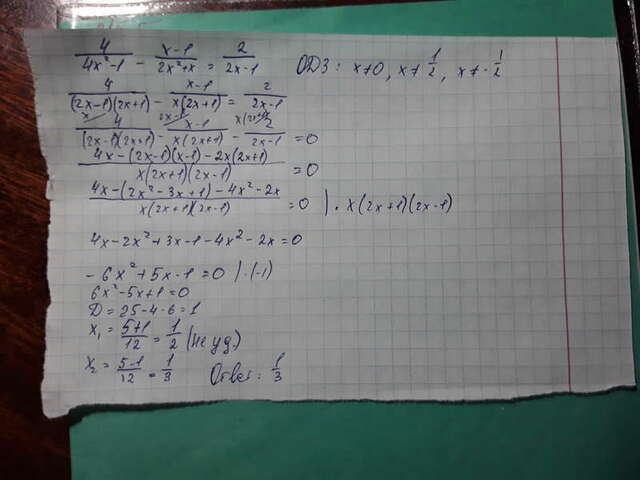 4/(4x²-1) - (x-1)/(2x²+x) = 2/(2x-1) ОДЗ: x≠0, x≠1/2, x≠-1/2
4/((2x-1)(2x+1)) - (x-1)/(x(2x+1)) = 2/(2x-1)
x 2x-1 x(2x+1)
4/((2x-1)(2x+1)) - (x-1)/(x(2x+1)) - 2/(2x-1) = 0
(4x-(2x-1)(x-1)-2x(2x+1))/(x(2x+1)(2x-1)) = 0
(4x-(2x²-3x+1)-4x²-2x)/(x(2x+1)(2x-1)) = 0 | · x(2x+1)(2x-1)
4x-2x²+3x-1-4x²-2x=0
-6x²+5x-1=0 | ·(-1)
6x²-5x+1=0
D=25-4·6=1
x₁=(5+1)/12=1/2 (не уд.)
x₂=(5-1)/12=1/3 Ответ: 1/3